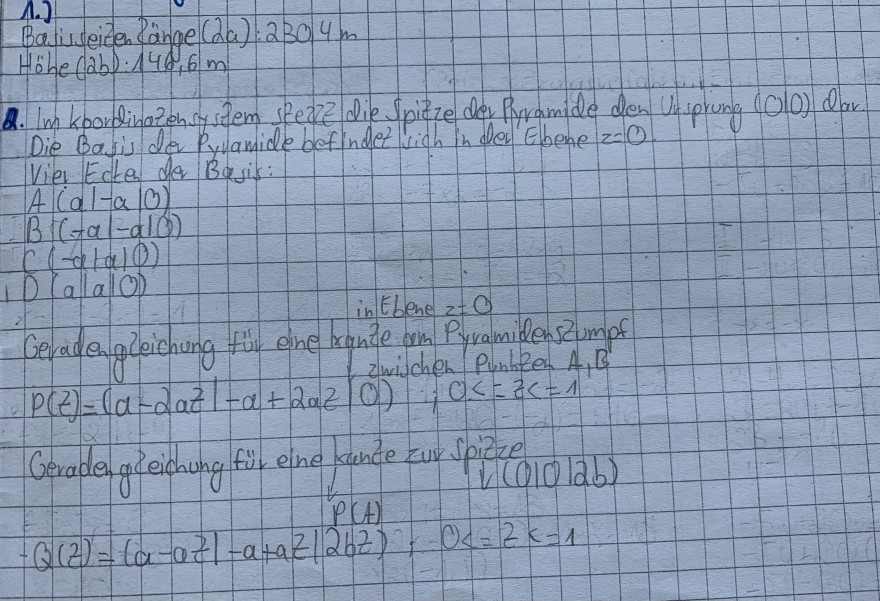 1.)
Basisseitenlänge (2a): 230,4 m
Höhe (2b): 146,6 m
2. Im koordinatensystem stellt die Spitze der Pyramide den Ursprung (0|0) dar.
Die Basis der Pyramide befindet sich in der Ebene z=0.
Vier Ecken der Basis:
A (a|-a|0)
B (-a|-a|0)
C (-a|a|0)
D (a|a|0)
in Ebene z=0
Geradengleichung für eine kante am Pyramidenstumpf
zwischen Punkten A,B
P(t)=(a-2at|-a+2at|0) ; 0<=t<=1
Geradengleichung für eine kante zur Spitze
↓ (0|0|2b)
P(A)
Q(t)=(a-at|-a+at|2bt) ; 0<=t<=1